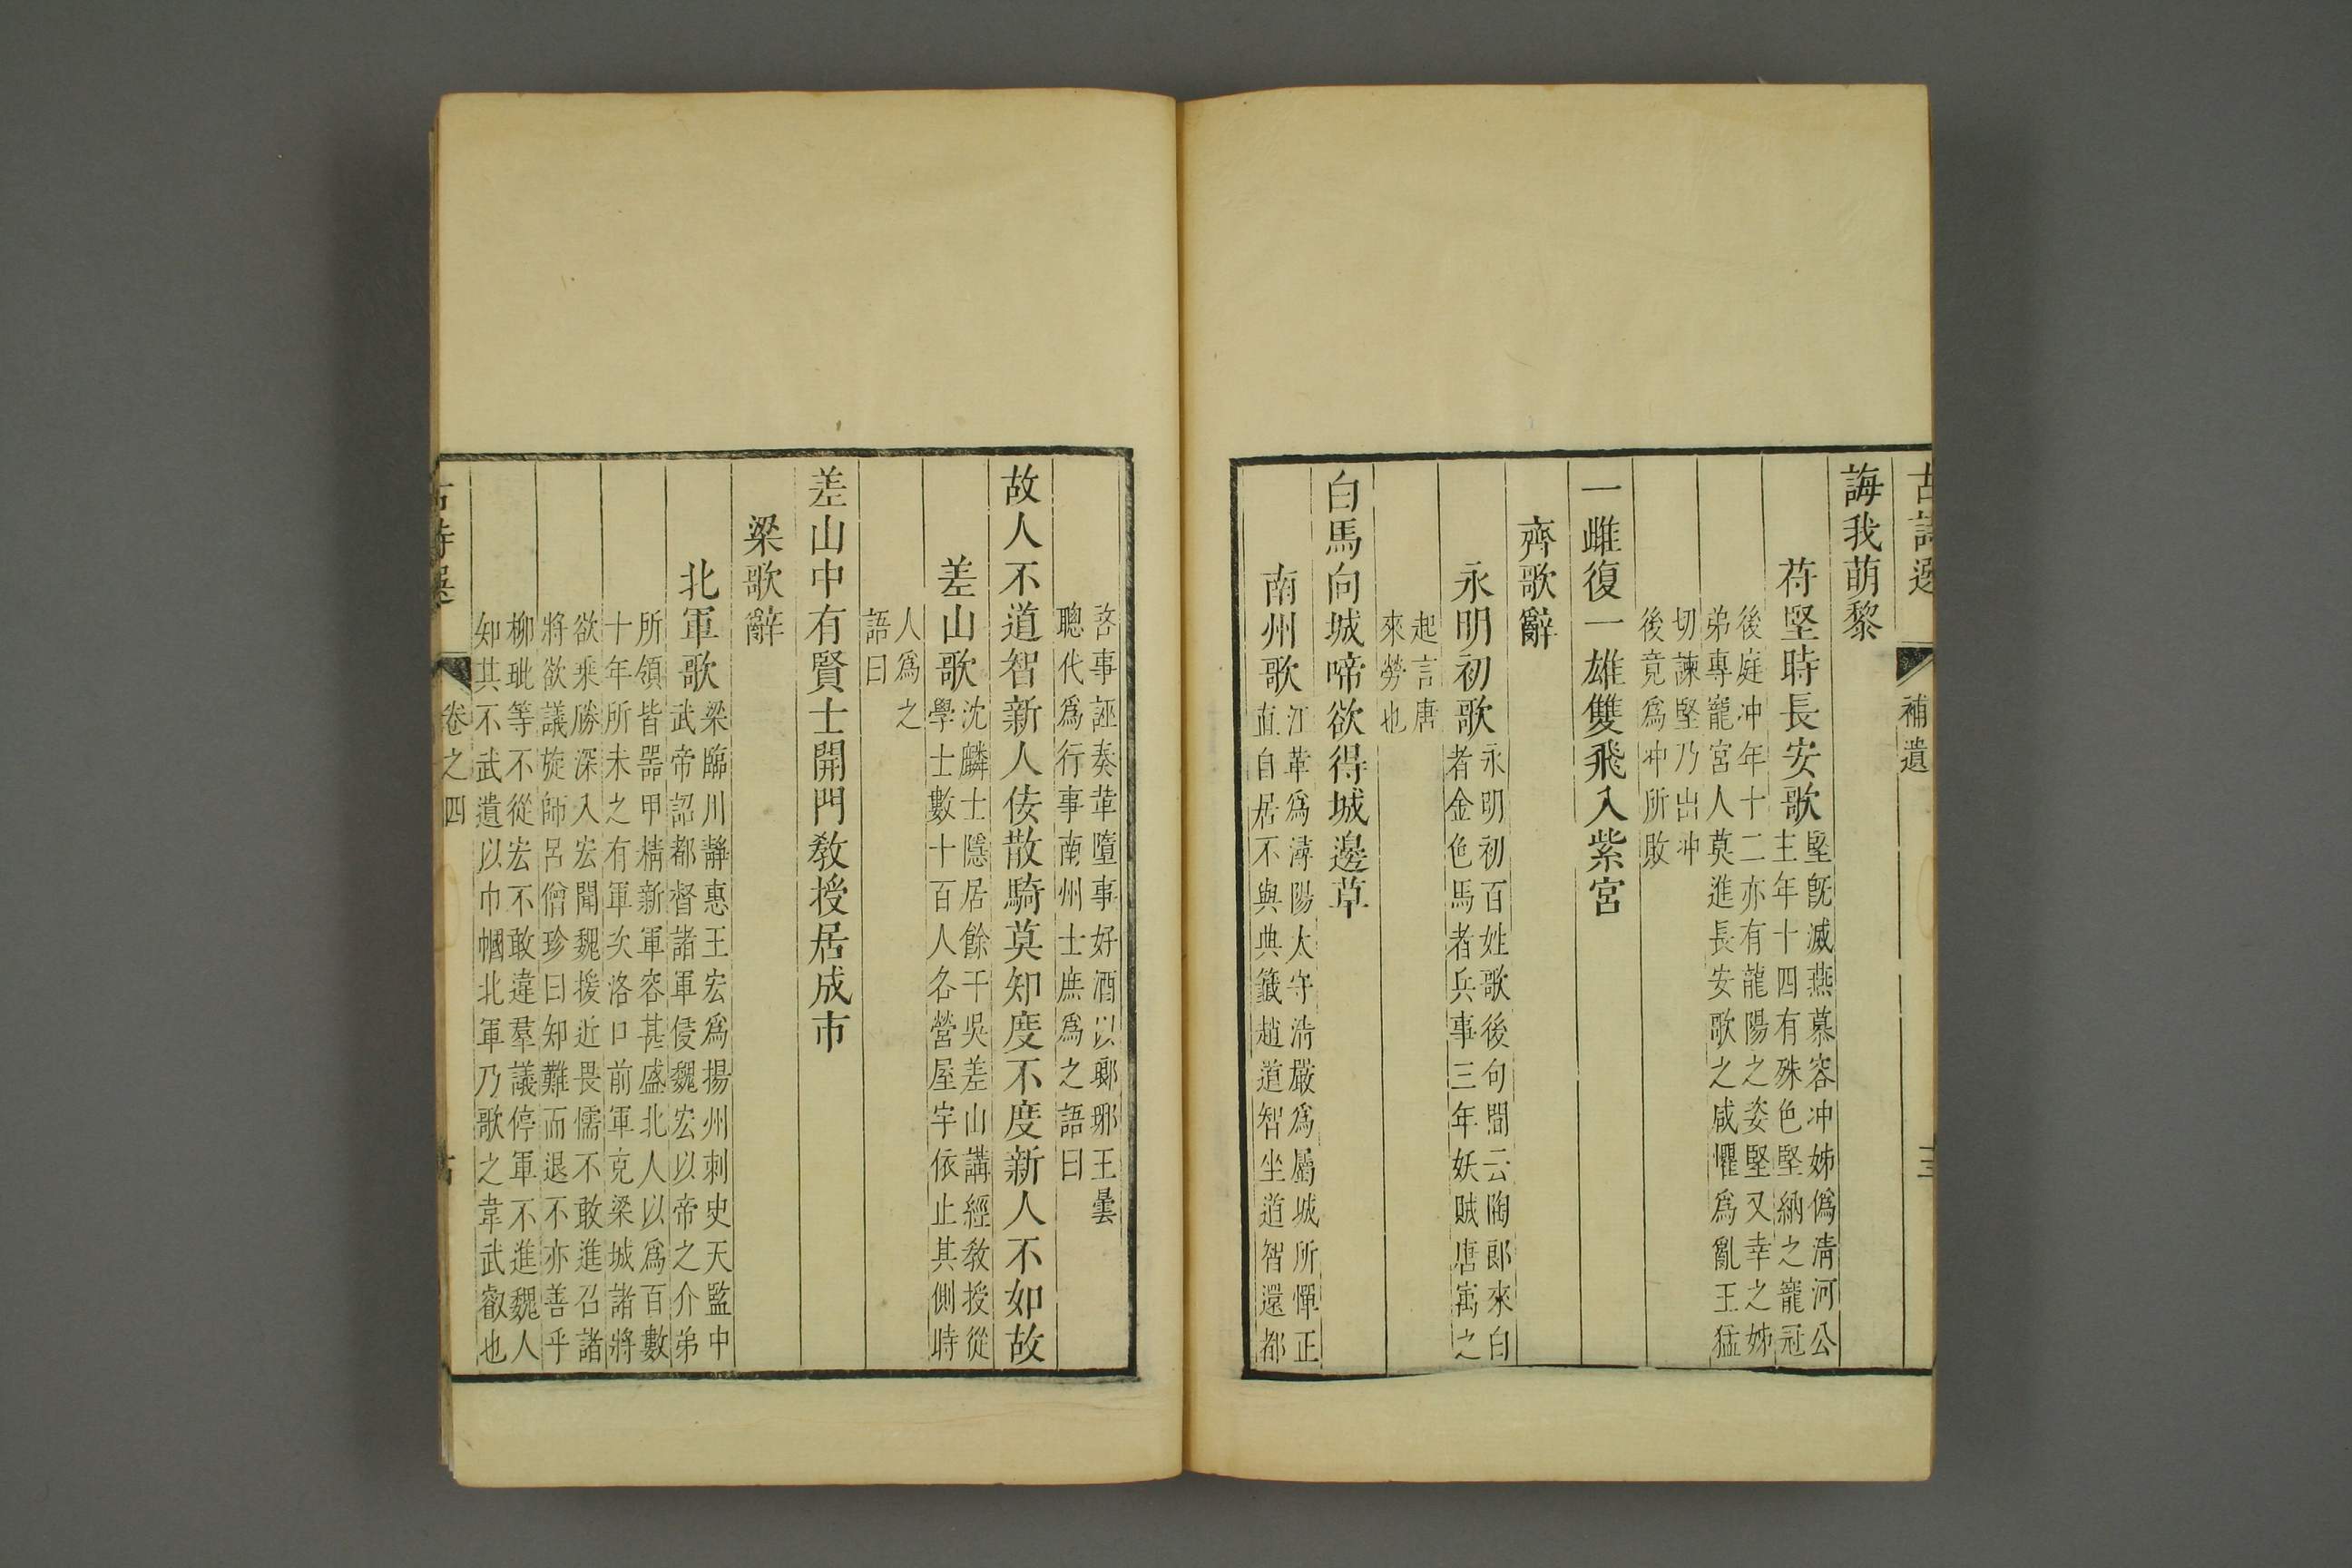 古詩選
補遺
誨我萌黎
苻堅時長安歌
堅旣滅燕慕容冲姊僞淸河公
主年十四有殊色堅納之寵冠
後庭冲年十二亦有龍陽之姿堅又幸之姊
弟專寵宮人莫進長安歌之咸懼爲亂王猛
切諫堅乃出冲
後竟爲冲所敗
一雌復一雄雙飛入紫宮
齊歌辭
永明初歌
永明初百姓歌後句間云陶郎來白
者金色馬者兵事三年妖賊唐㝢之
起言唐
來勞也
白馬向城啼欲得城邊草
南州歌
江革爲潯陽太守淸嚴爲屬城所憚正
直自居不與典籤趙道智坐道智還都
啓事誣奏革墮事好酒以瑯琊王曇
聰代爲行事南州士庶爲之語曰
故人不道智新人佞散騎莫知度不度新人不如故
差山歌
沈麟士隱居餘干吳差山講經敎授從
學士數十百人各營屋宇依止其側時
人爲之
語曰
差山中有賢士開門敎授居成市
梁歌辭
北軍歌
梁臨川靜惠王宏爲揚州刺史天監中
武帝詔都督諸軍侵魏宏以帝之介弟
所領皆器甲精新軍容甚盛北人以爲百數
十年所未之有軍次洛口前軍克梁城諸將
欲乘勝深入宏聞魏援近畏懦不敢進召諸
將欲議旋師呂僧珍曰知難而退不亦善乎
柳玭等不從宏不敢違羣議停軍不進魏人
知其不武遺以巾幗北軍乃歌之韋武叡也
古詩選
卷之四